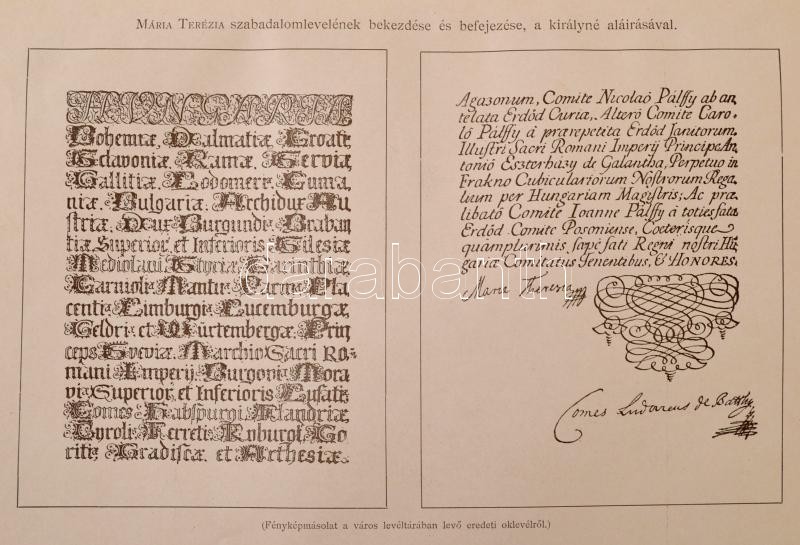 Mária Terézia szabadalomlevelének bekezdése és befejezése, a királyné aláirásával.
HUNGARIÆ
Bohemiæ, Dalmatiæ, Croatiæ
Sclavoniæ, Ramæ, Serviæ
Gallitiæ, Lodomeræ, Cuma,
niæ, Bulgariæ, Archidux Au
striæ, Dux Burgundiæ, Braban
tiæ, Superior, et Inferioris Silesiæ
Mediolani, Styriæ, Carinthiæ
Carnioli, Mantuæ, Parmæ, Pla
centiæ, Limburgiæ, Lucemburgæ
Geldriæ et Würtembergæ, Prin
ceps Sveviæ, Marchio Sacri Ro,
mani Imperij, Burgoviæ, Mora
viæ Superior, et Inferioris Lusatiæ
Comes Habspurgi, Flandriæ,
Tyroli, Ferreti, Kyburgi, Go
ritiæ, Gradiscæ, et Arthesiæ.
Agazonum, Comite Nicolaó Pálffy ab an,
telata Erdőd Curiæ, Alteró Comite Caro,
ló Pálffy á præpetita Erdőd Janitorum,
Illustri Sacri Romani Imperij Principe An,
tonió Eszterházy de Galantha, Perpetuo in
Frakno Cubiculariorum Nostrorum Rega,
lium per Hungariam Magistris; Ac præ,
libató Comite Joanne Pálffy á toties fata
Erdőd Comite Posoniense, Cæterisque
quamplurimis, sæpé fati Regni nostri Hũ
gariæ Comitatus Tenentibus, & HONORES.
Maria Theresia
Comes Ludovicus de Batthy
darabanth
(Fényképmásolat a város levéltárában levő eredeti oklevélről.)